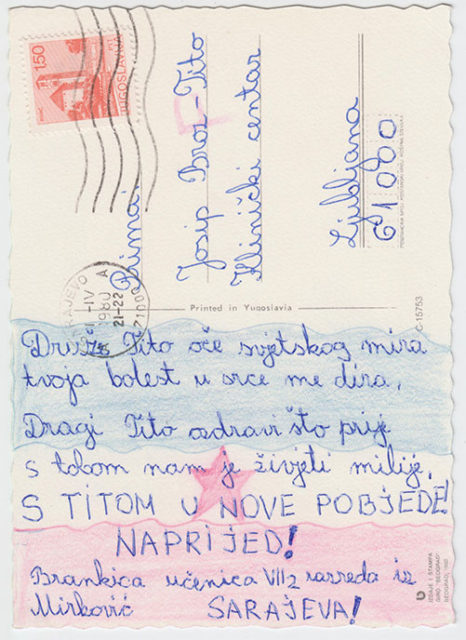 1.50
JUGOSLAVIJA
Prima:
Josip Broz-Tito
Klinički centar
Ljubljana
61000
SARAJEVO
-IV
1980 A
21-22
71000
Printed in Yugoslavia
C-15753
Druže Tito oče svjetskog mira
tvoja bolest u srce me dira,
Dragi Tito ozdravi što prije
s tobom nam je živjeti milije,
S TITOM U NOVE POBJEDE!
NAPRIJED!
Brankica učenica VII2 razreda iz
Mirković SARAJEVA!
IZDAJE I ŠTAMPA
BEOGRAD